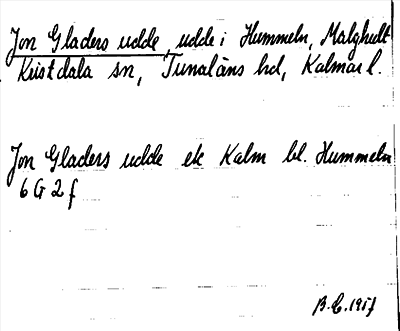 Jon Gladers udde, udde i Hummeln, Malghult
Kristdala sn, Tunaläns hd, Kalmar l.
Jon Gladers udde ek Kalm bl. Hummeln
6 G 2 f
B.E. 1957